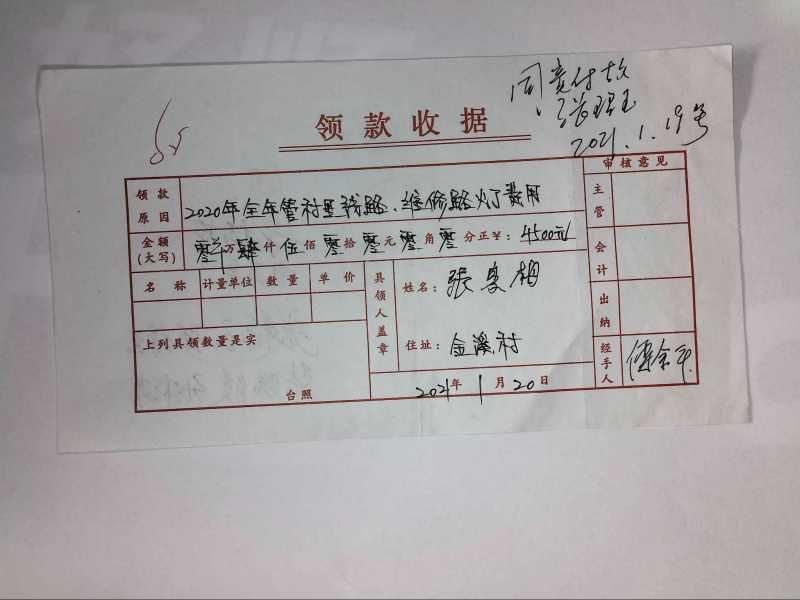 同意付款
2021.1.19号
领款收据
审核意见
领款原因 2020年全年管村里线路、维修路灯费用
主管
金额(大写) 零万肆仟伍佰零拾零元零角零分正¥:4500元
会计
名称 计量单位 数量 单价
具领人盖章
姓名:張
住址:金溪村
出纳
上列具领数量是实
台照
经手人
2021年1月20日